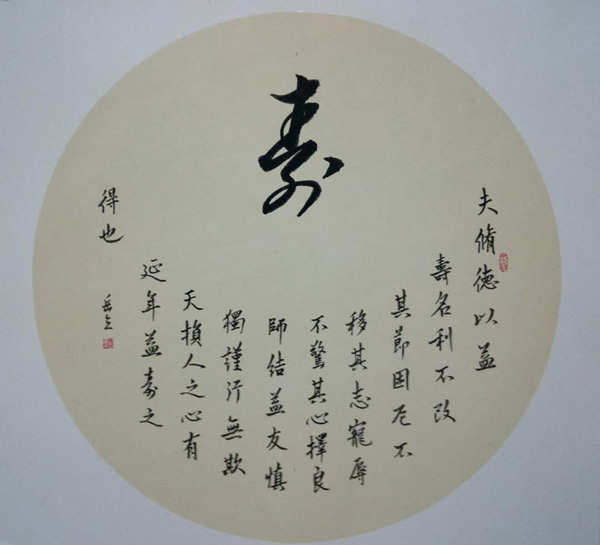 寿
夫脩德以益
壽名利不改
其節困厄不
移其志寵辱
不驚其心擇良
師結益友慎
獨謹行無欺
天損人之心有
延年益寿之
得也